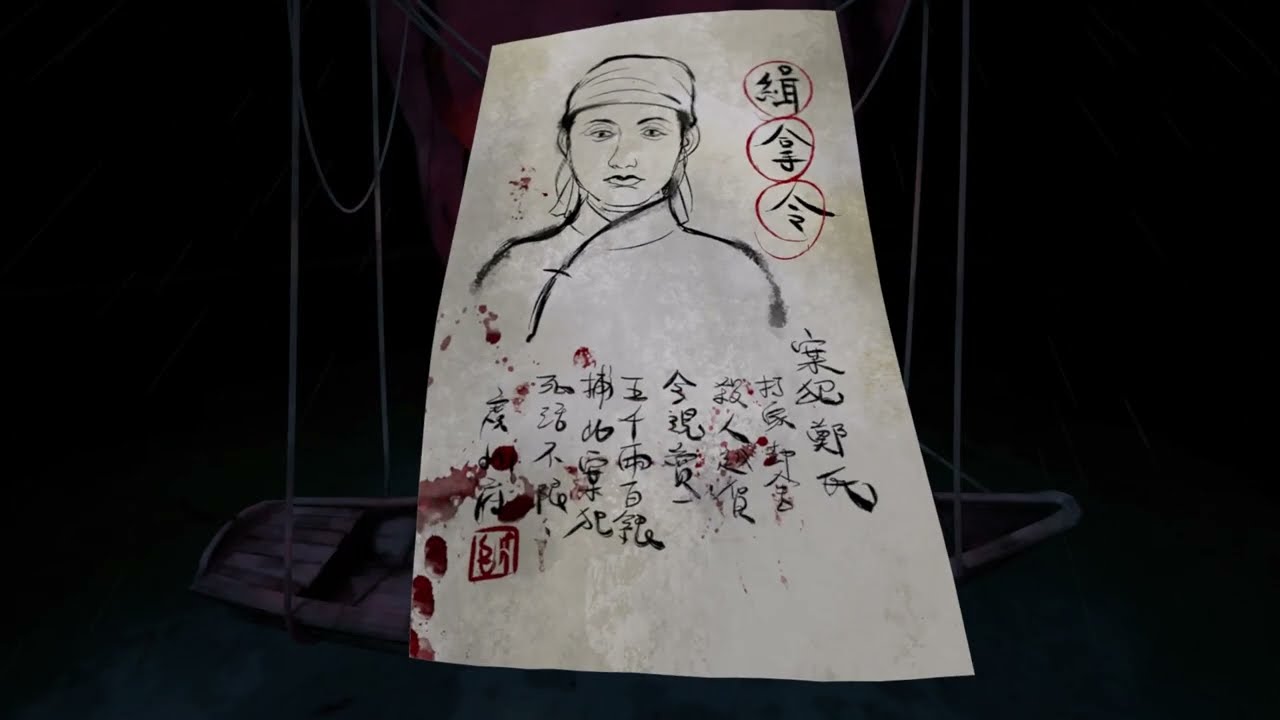 緝拿令
案犯鄭氏
打家劫舍
殺人越貨
今現賞
五千兩百銀
捕此案犯
死活不限
廣州府